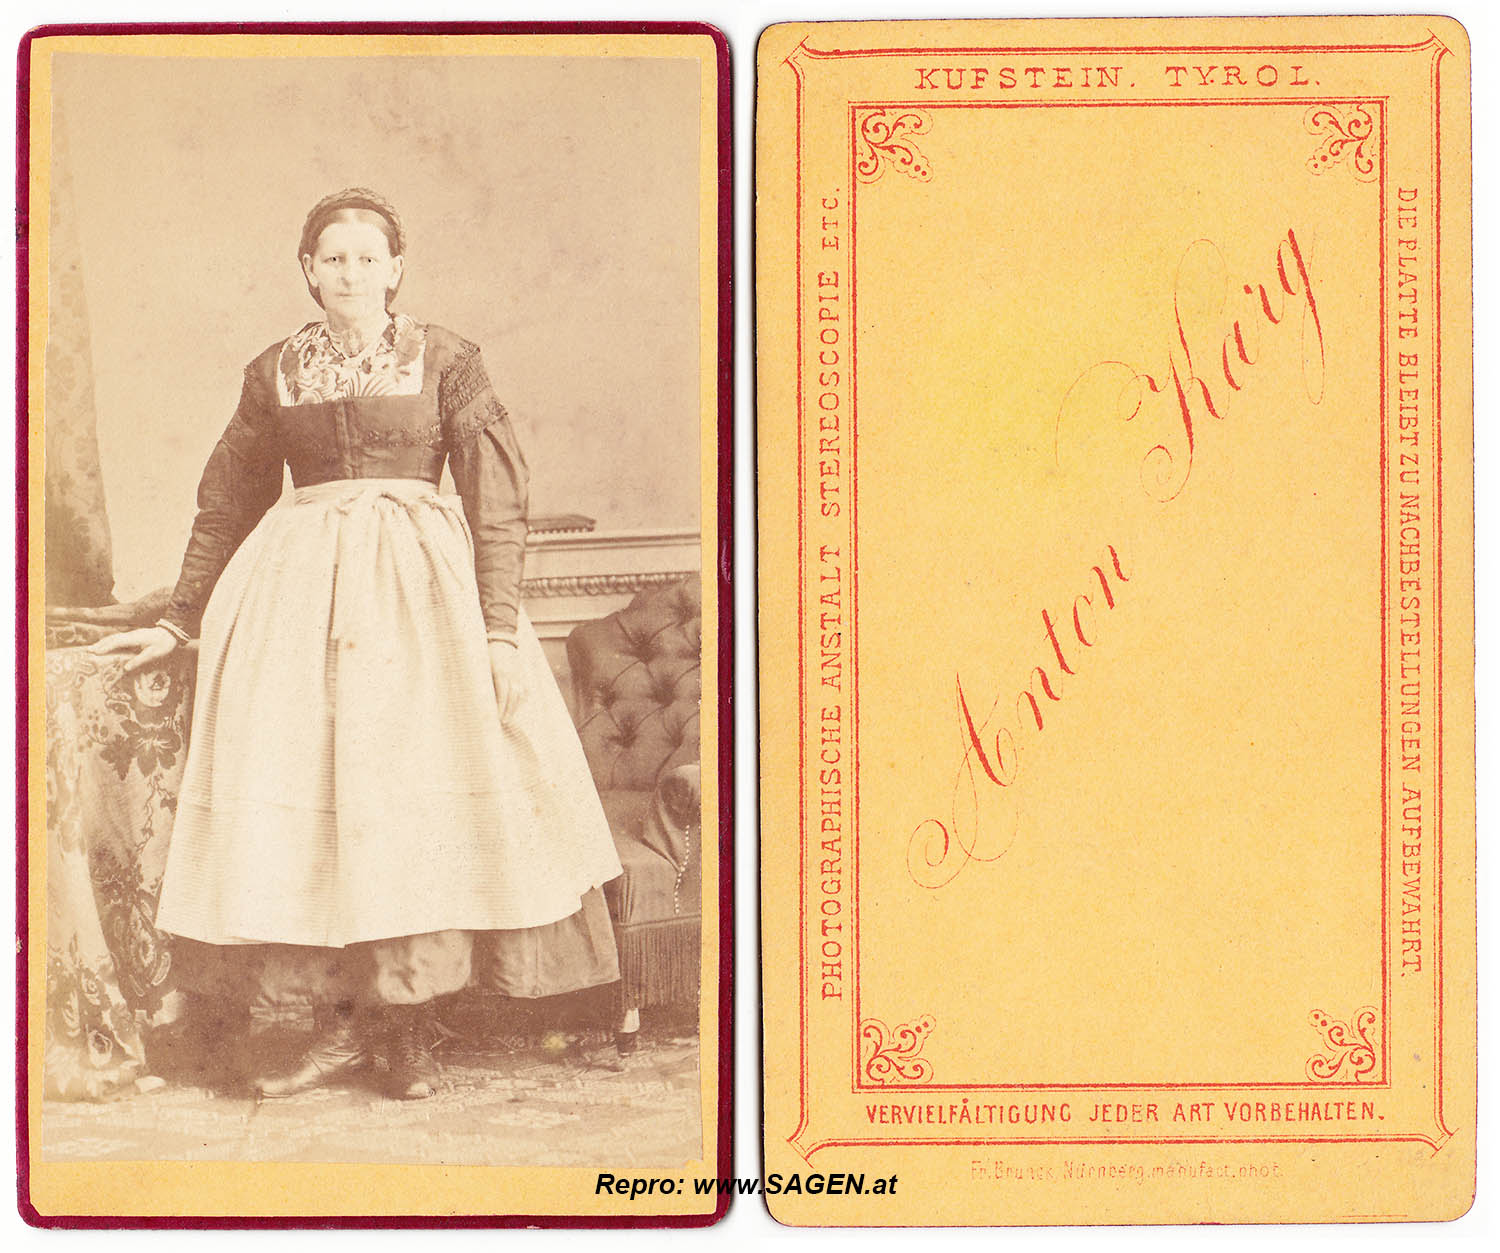 KUFSTEIN. TYROL.
PHOTOGRAPHISCHE ANSTALT STEREOSCOPIE ETC.
Anton Karg
DIE PLATTE BLEIBT ZU NACHBESTELLUNGEN AUFBEWAHRT.
VERVIELFÄLTIGUNG JEDER ART VORBEHALTEN.
Nürnberg, manufact. phot.
Repro: www.SAGEN.at